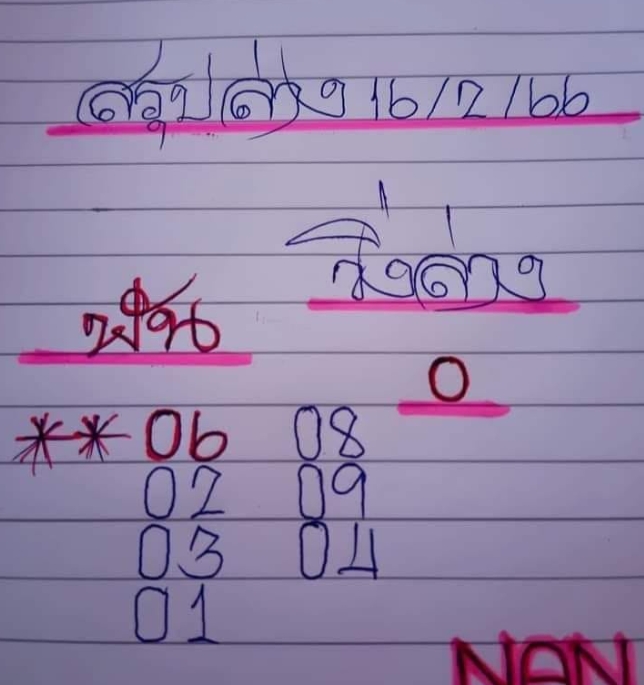 สรุปล่าง 16/2/66
วิ่งล่าง
ฟัน
0
**06 08
02 09
03 04
01
NAN